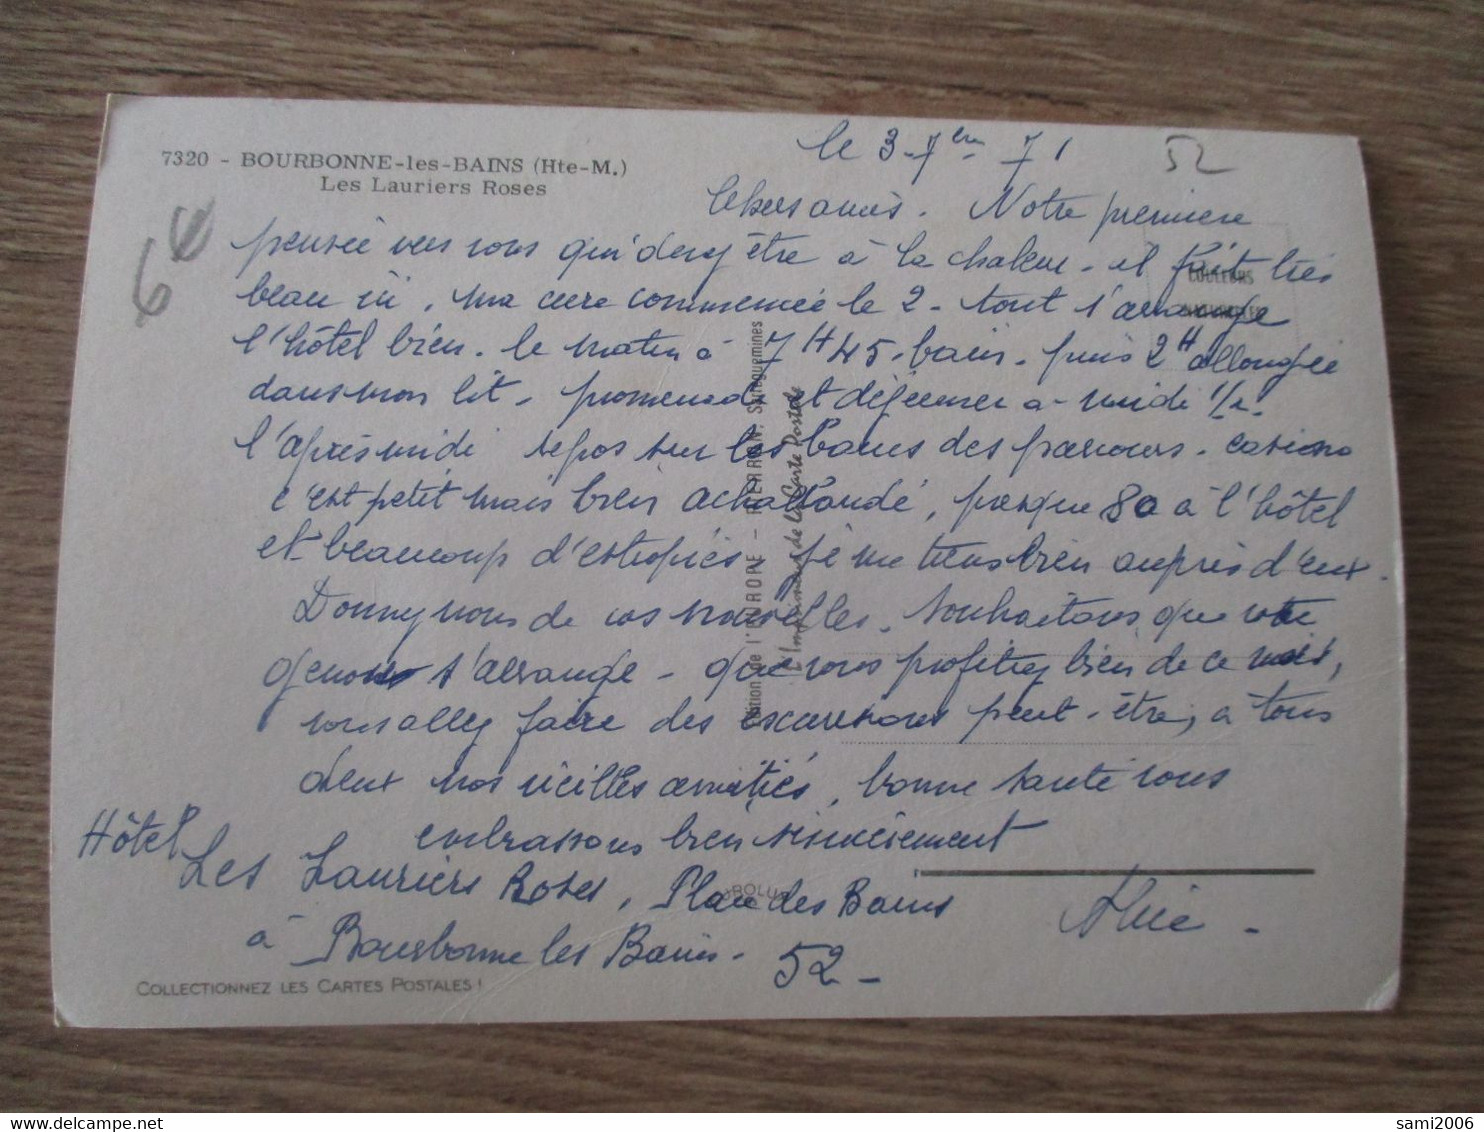 7320 - BOURBONNE-les-BAINS (Hte-M.)
Les Lauriers Roses
le 3-7em 71
52
6€
Chers amis. Notre première
pensée vers vous qui devez être à la chaleur. il fait très
beau ici. Ma cure commencée le 2. tout s'arrange
COULEURS
NATURELLES
l'hôtel bien. le matin à 7H45. bain. puis 2H allongée
dans mon lit. promenade et déjeuner à midi 1/2.
l'après midi repos sur les bancs des parcours. casino
c'est petit mais bien achalandé, presque 80 à l'hôtel
et beaucoup d'estropiés. Je me tiens bien auprès d'eux.
Donnez nous de vos nouvelles. Souhaitons que votre
genou s'arrange - que vous profitez bien de ce mois,
vous allez faire des excursions peut-être, à tous
deux nos vieilles amitiés, bonne santé vous
embrassons bien sincèrement
Edition de l'EUROPE - PIERRON, Sarreguemines
L'Imprimeur de la Carte Postale
Hôtel Les Lauriers Roses, Place des Bains
à Bourbonne les Bains. 52 -
COLLECTIONNEZ LES CARTES POSTALES !
sami2006